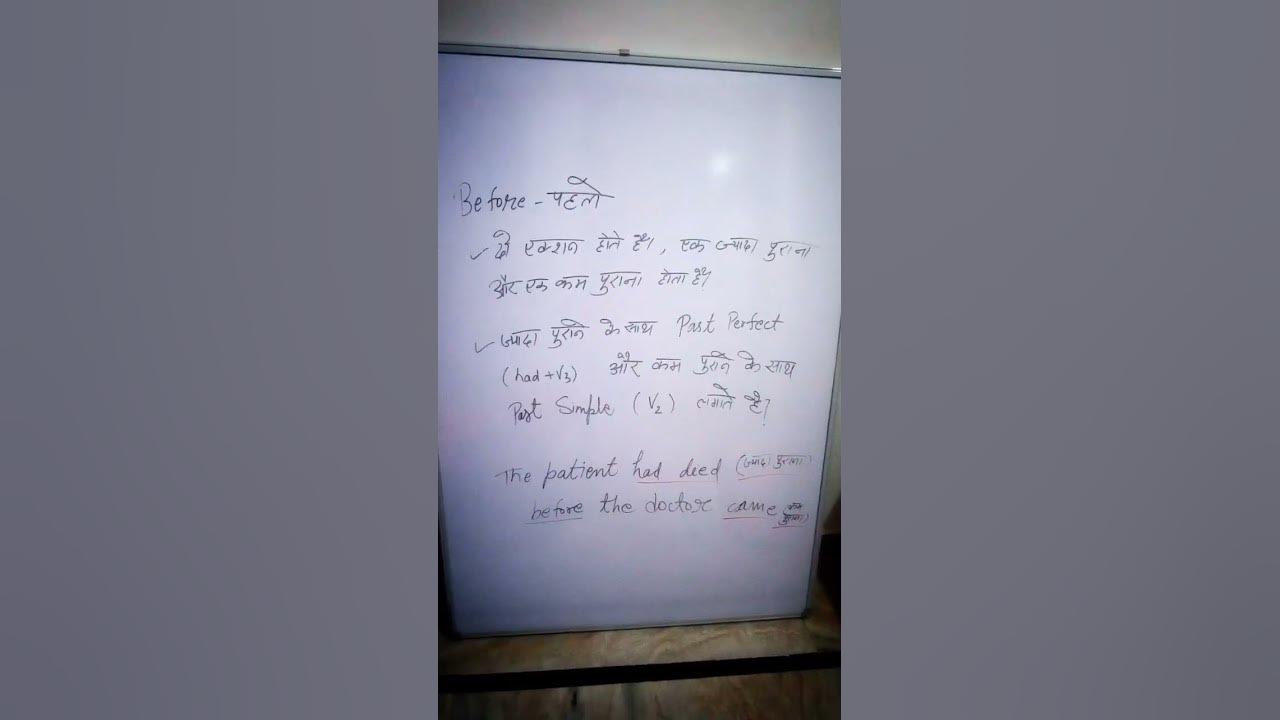 Before - पहले
✓ दो एक्शन होते है। , एक ज्यादा पुराना
और एक कम पुराना होता है।
✓ ज्यादा पुराने के साथ Past Perfect
(had + V3) और कम पुराने के साथ
Past Simple (V2) लगाते है?
The patient had died (ज्यादा पुराना)
before the doctor came (कम
पुराना)